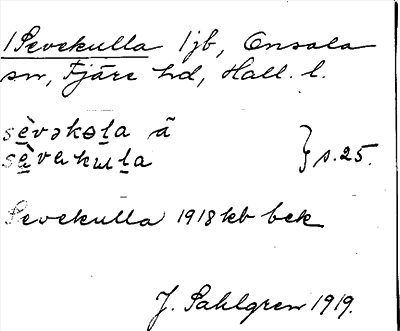 1 Sevekulla 1jb, Onsala
sn, Fjäre hd, Hall. l.
sèvəkɵla ã
sèvɐkɯla } s. 25.
Sevekulla 1918 kb bek
J. Sahlgren 1919.